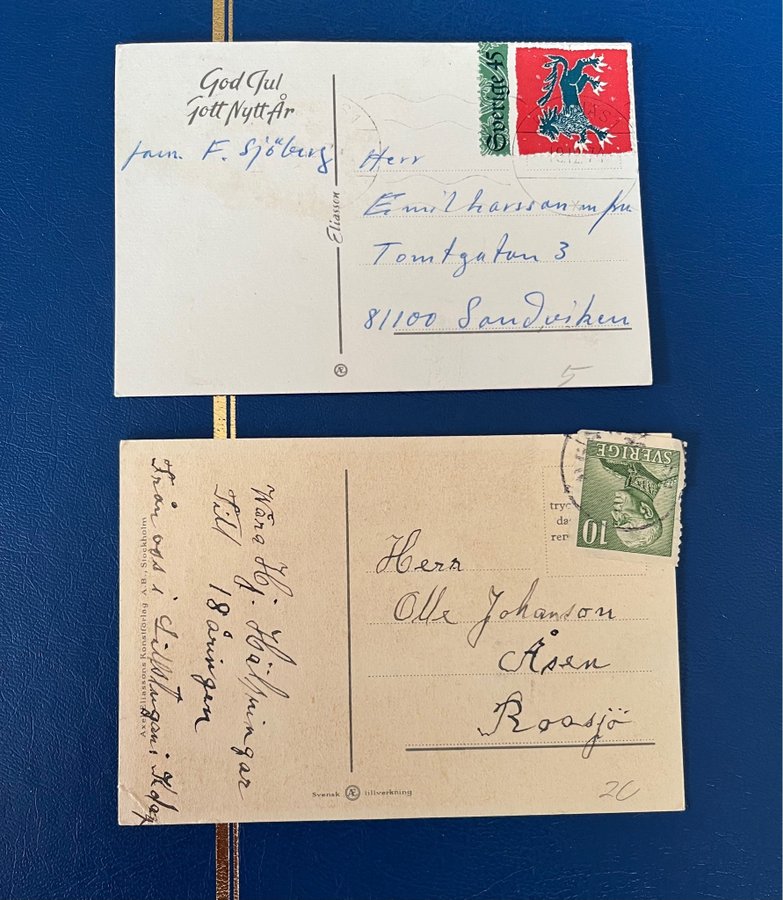 God Jul
Gott Nytt År
fam. F. Sjöberg
Eliasson
Æ
Sverige 45
Herr
Emil
Tomtgatan 3
81100 Sandviken
5
Från oss i
Wåra Hj. Hälsningar
Till 18 åringen
Axel Eliassons Konstförlag A.B., Stockholm
Svensk Æ tillverkning
tryc
da
ren
SVERIGE
10
Herrn
Olle Johanson
Åsen
Roasjö
20